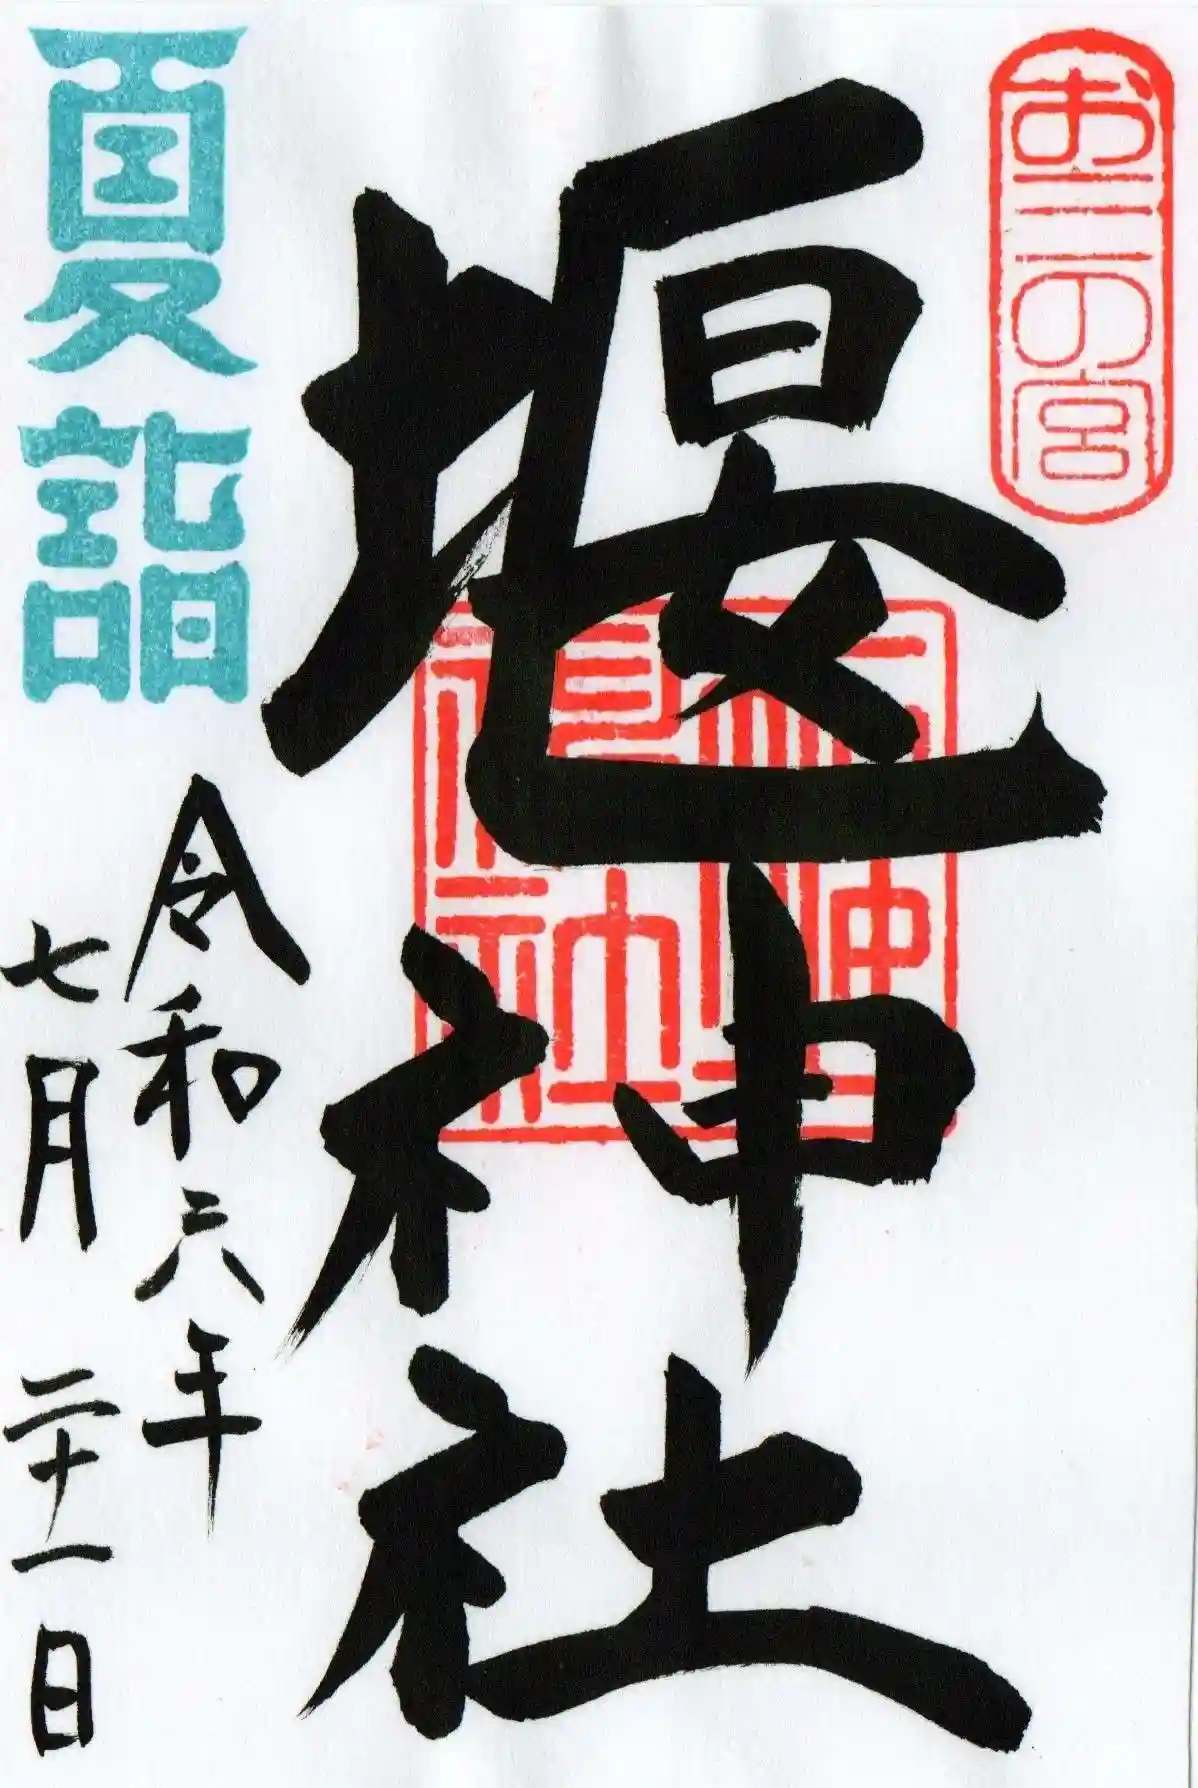 お三の宮
堰神社
夏詣
令和六年
七月二十一日